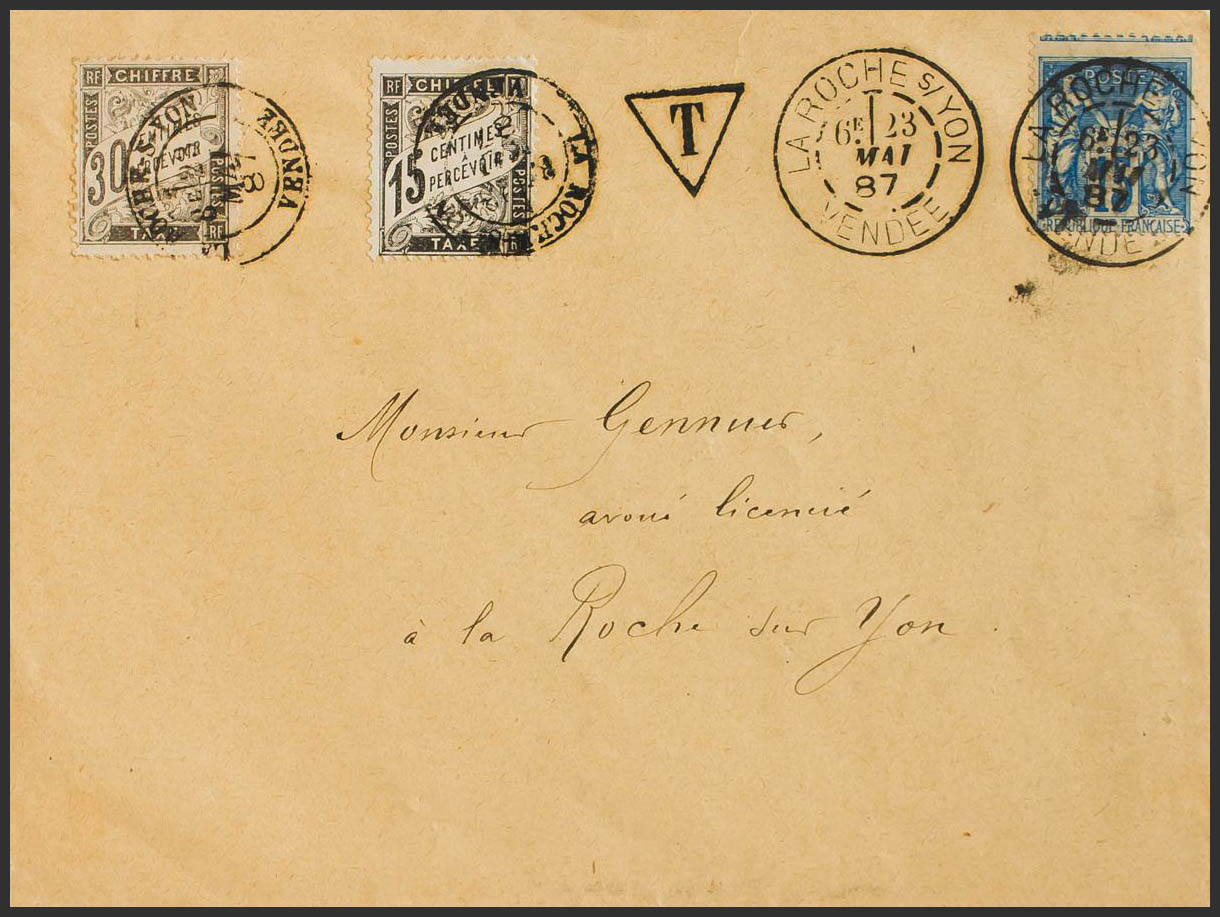 RF CHIFFRE
POSTES
30
PERCEVOIR
POSTES
TAXE RF
LA ROCHE-S-YON
VENDÉE
RF CHIFFRE
POSTES
15
CENTIMES
À
PERCEVOIR
POSTES
TAXE
T
LA ROCHE S/YON
6E 23
MAI
87
VENDEE
POSTE
15
REPUBLIQUE FRANÇAISE
LA ROCHE S/YON
6E 23
MAI
87
VENDEE
Monsieur Gennuer,
avoué licencié
à la Roche sur Yon.